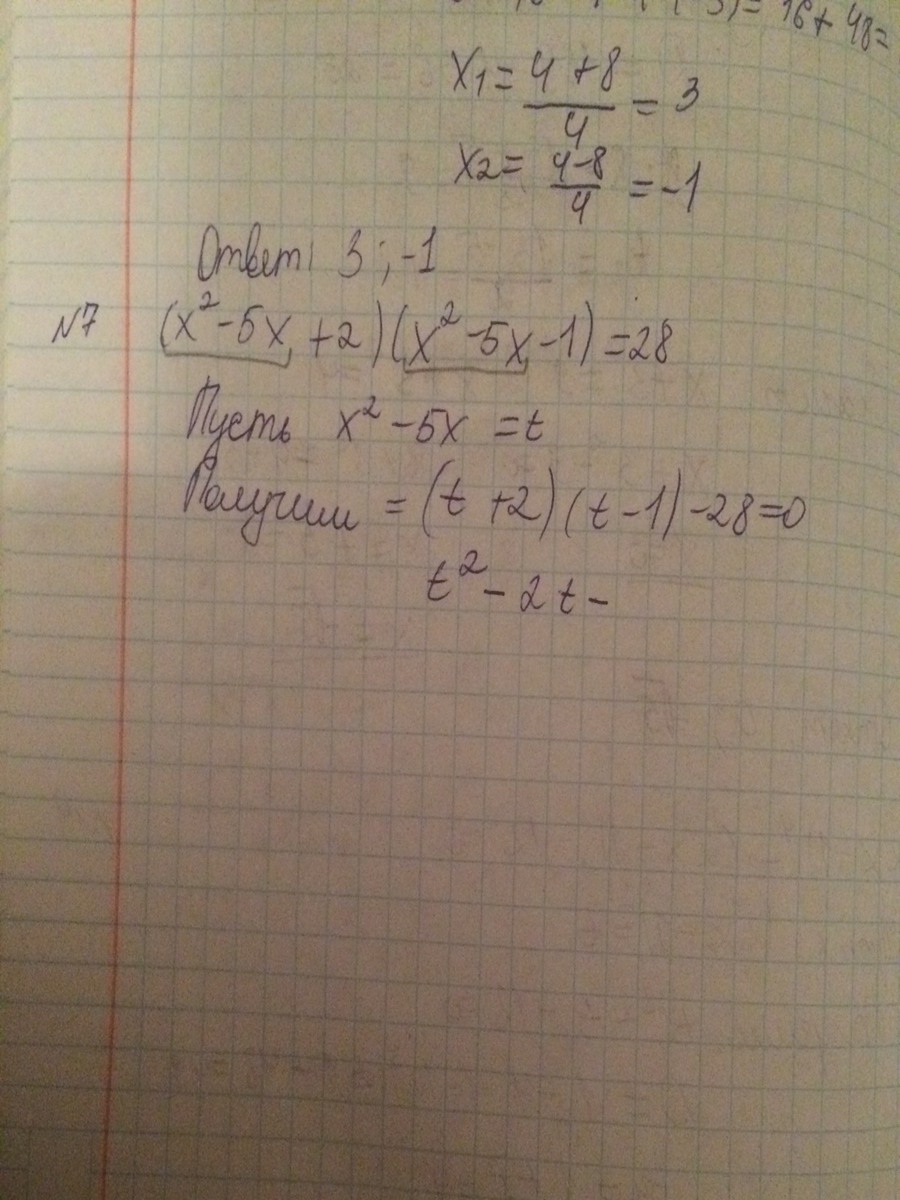 3) = 16 + 48 =
x₁ = (4 + 8)/4 = 3
x₂ = (4 - 8)/4 = -1
Ответ: 3 ; -1
№7 (x² - 5x + 2)(x² - 5x - 1) = 28
Пусть x² - 5x = t
Получим = (t + 2)(t - 1) - 28 = 0
t² - 2t -